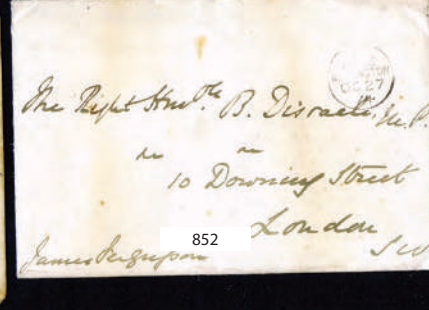 The Right Honble B. Disraeli, M.P.
10 Downing Street
London
S W
James Fergusson
852
OC 27